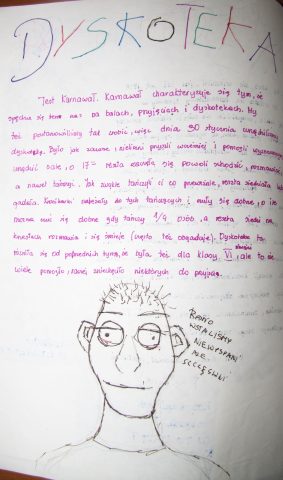 DYSKOTEKA
Jest Karnawał. Karnawał charakteryzuje się tym, że
spędza się teraz czas na balach, przyjęciach i dyskotekach. My
też postanowiliśmy tak zrobić, więc dnia 30 stycznia urządziliśmy
dyskotekę. Było jak zawsze, niektórzy przyszli wcześniej i pomogli wychowawczyni
urządzić salę, o 17⁰⁰ reszta zaczęła się powoli schodzić, rozmawiać
a nawet tańczyć. Jak zwykle tańczyli ci co przeważnie, reszta siedziała
gadała. należały do tych tańczących i bawiły się dobrze, o ile
można bawić się dobrze gdy tańczy 1/4 osób, a reszta siedzi na
krzesłach rozmawia i się śmieje (często też obgaduje). Dyskoteka ta
różniła się od poprzednich tym, że była też dla klasy VI, ale to nie
wiele pomogło, nawet zniechęciło niektórych do przyjścia.
RANO
WSTALIŚMY
NIEWYSPANI
ALE
SZCZĘŚLIWI